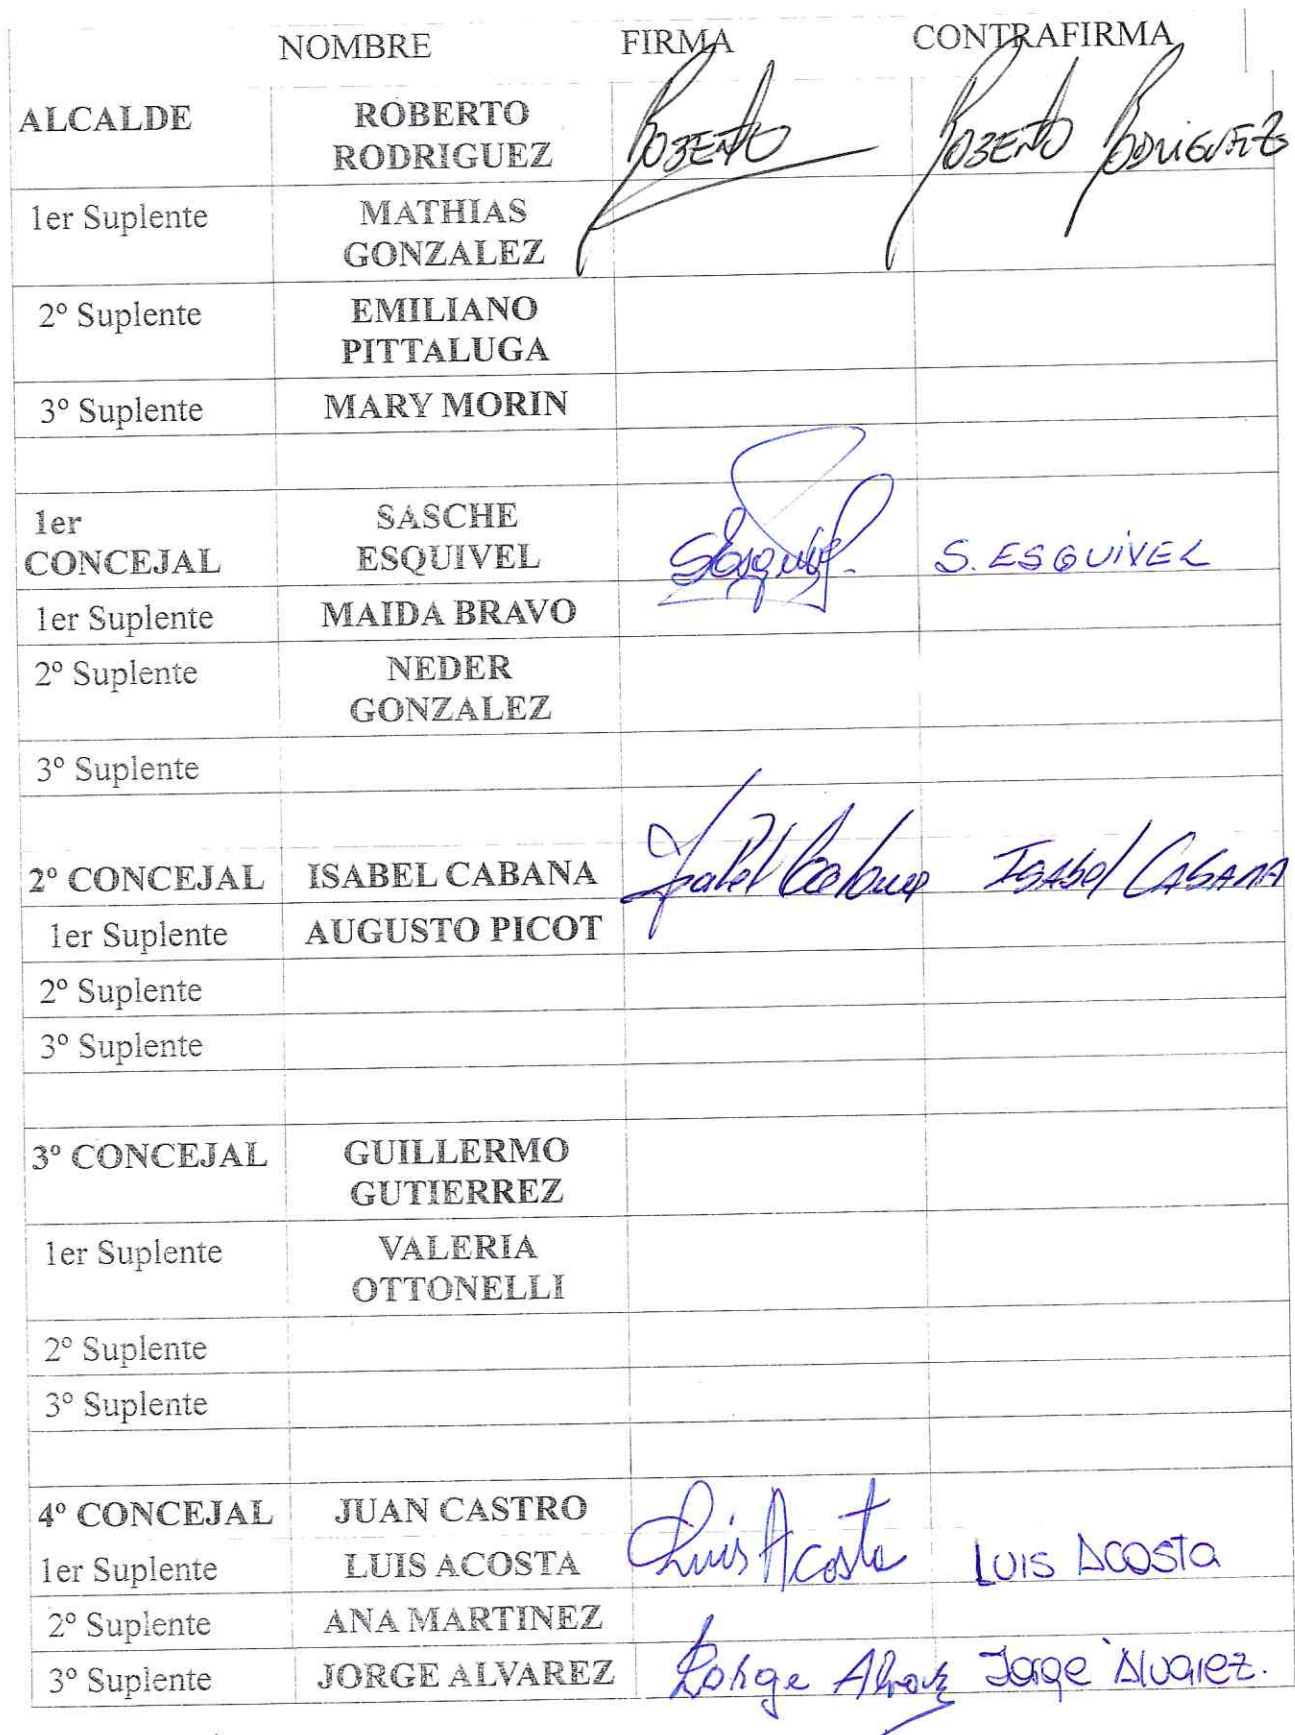 NOMBRE FIRMA CONTRAFIRMA
ALCALDE ROBERTO RODRIGUEZ Roberto Roberto Rodriguez
1er Suplente MATHIAS GONZALEZ
2º Suplente EMILIANO PITTALUGA
3º Suplente MARY MORIN
1er CONCEJAL SASCHE ESQUIVEL SEsquivel. S. ESQUIVEL
1er Suplente MAIDA BRAVO
2º Suplente NEDER GONZALEZ
3º Suplente
2º CONCEJAL ISABEL CABANA Isabel Cabana ISABEL CABANA
1er Suplente AUGUSTO PICOT
2º Suplente
3º Suplente
3º CONCEJAL GUILLERMO GUTIERREZ
1er Suplente VALERIA OTTONELLI
2º Suplente
3º Suplente
4º CONCEJAL JUAN CASTRO
1er Suplente LUIS ACOSTA Luis Acosta LUIS ACOSTA
2º Suplente ANA MARTINEZ
3º Suplente JORGE ALVAREZ Jorge Alvarez Jorge Alvarez.